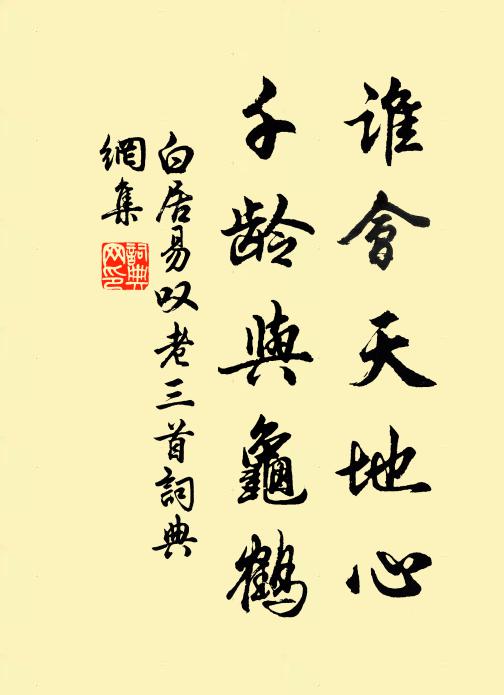 誰會天地心
千龄與龜鶴
白居易叹老三首詞典
網集
詞典
网印